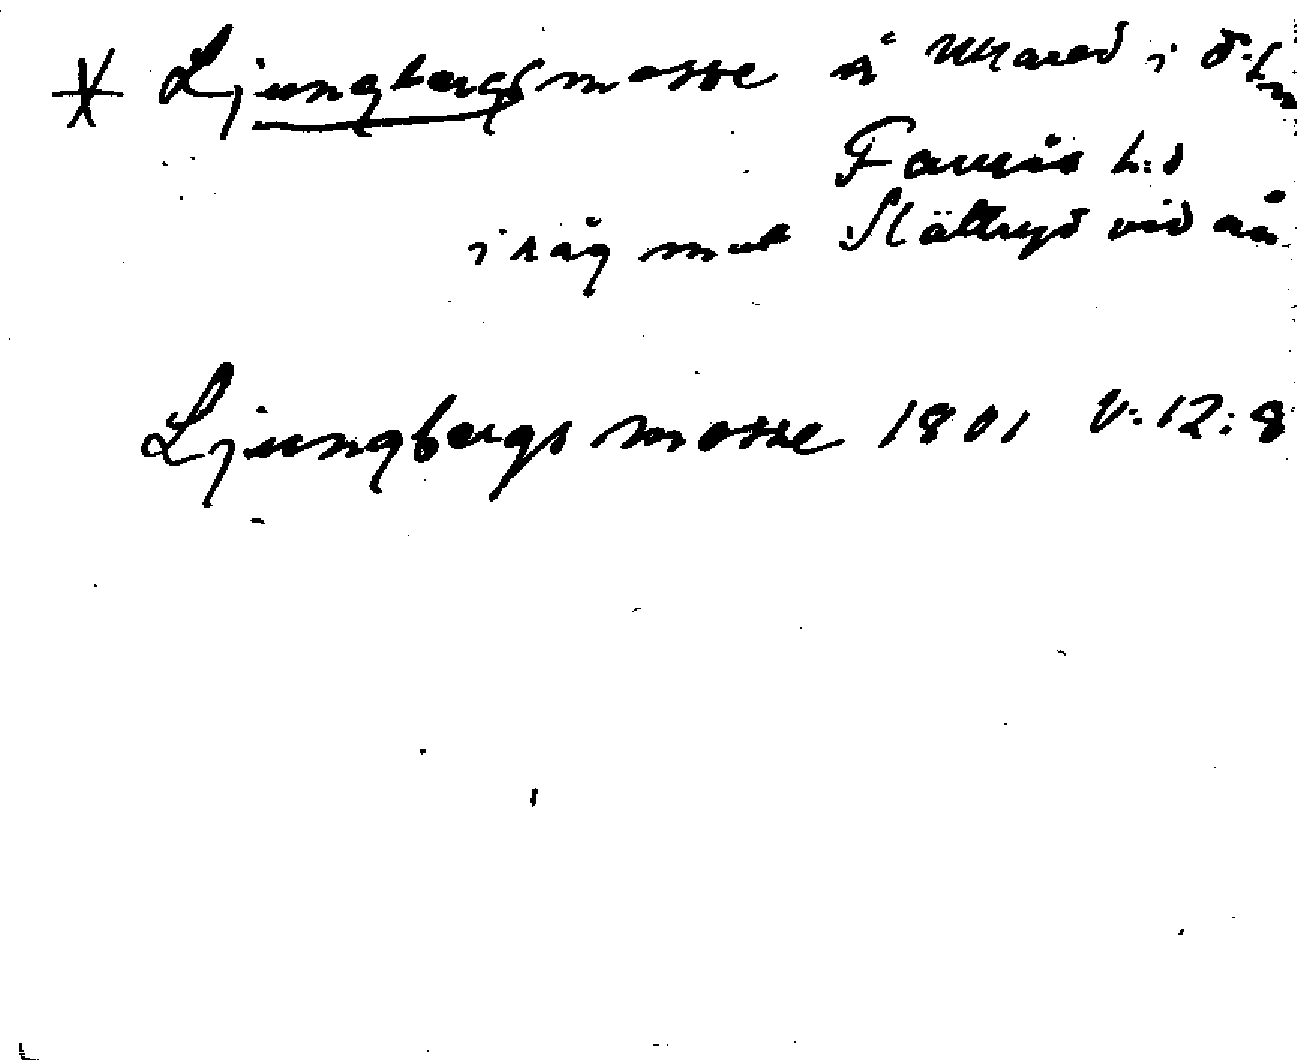 * Ljungbergsmosse å Ukared i Ö.
Faurås h:d
i råg mot Slättryd vid ån
Ljungbergs mosse 1801 V:12:8